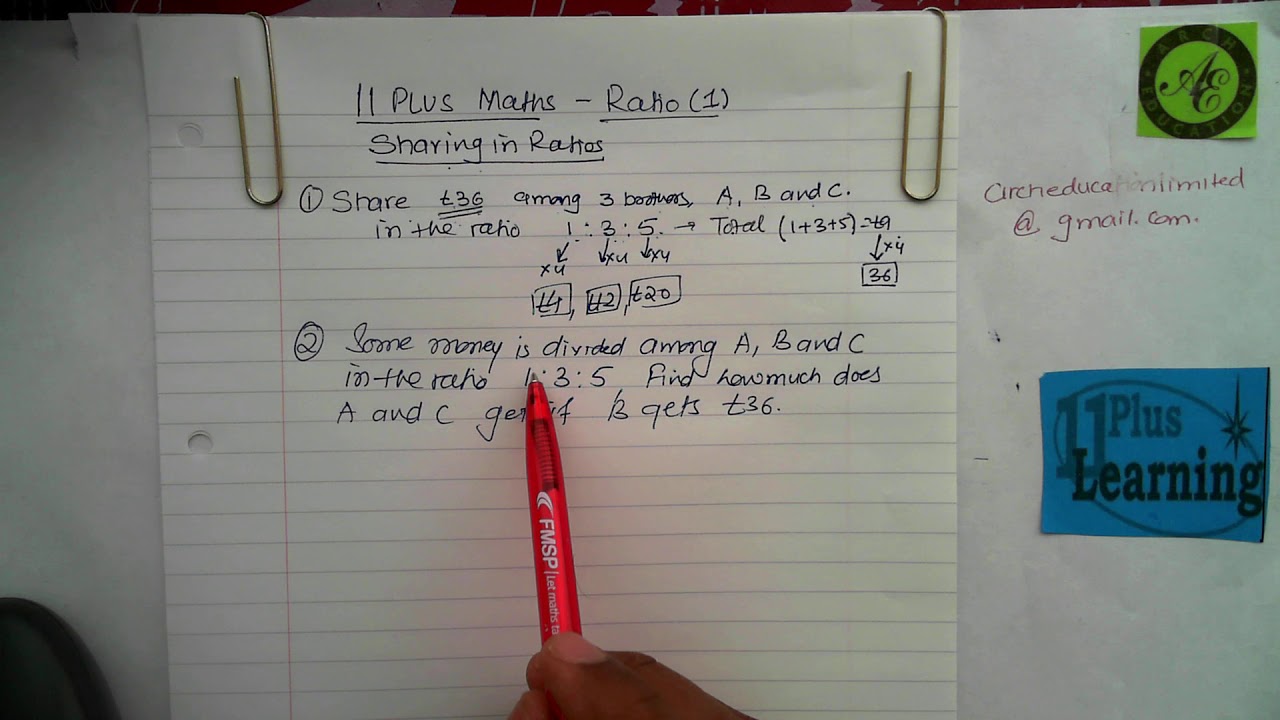 11 Plus Maths - Ratio (1)
Sharing in Ratios
① Share £36 among 3 brothers, A, B and C.
in the ratio 1 : 3 : 5. → Total (1+3+5) = £9
×4 ×4 ×4 ×4
£4, £12, £20 36
② Some money is divided among A, B and C
in the ratio 1 : 3 : 5 Find how much does
A and C get if B gets £36.
FMSP Let maths ta
ARCH
AE
EDUCATION
archeducationlimited
@ gmail.com.
11 Plus
Learning